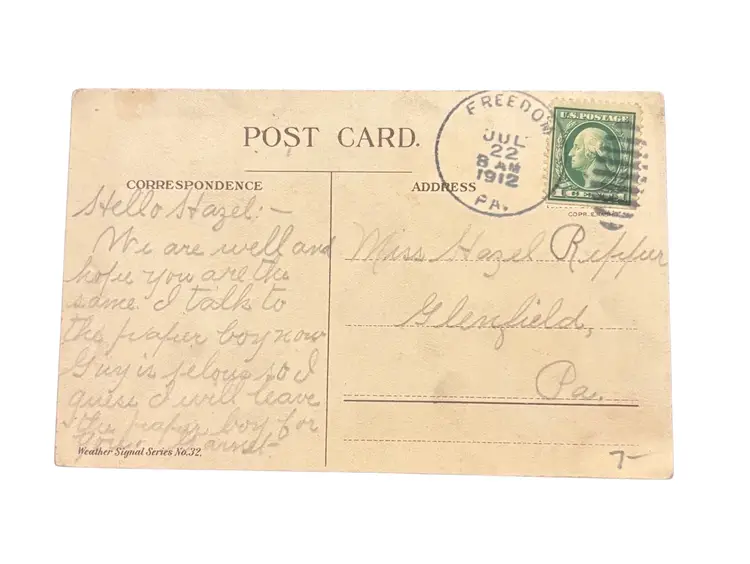 POST CARD.
FREEDOM
JUL
22
8 AM
1912
PA.
U.S. POSTAGE
CORRESPONDENCE
Hello Hazel:-
We are well and
hope you are the
same. I talk to
the paper boy now
Guy is jelous so I
guess I will leave
the paper boy for
Weather Signal Series No.32.
ADDRESS
Miss Hazel Ripper
Glenfield,
Pa.
7-